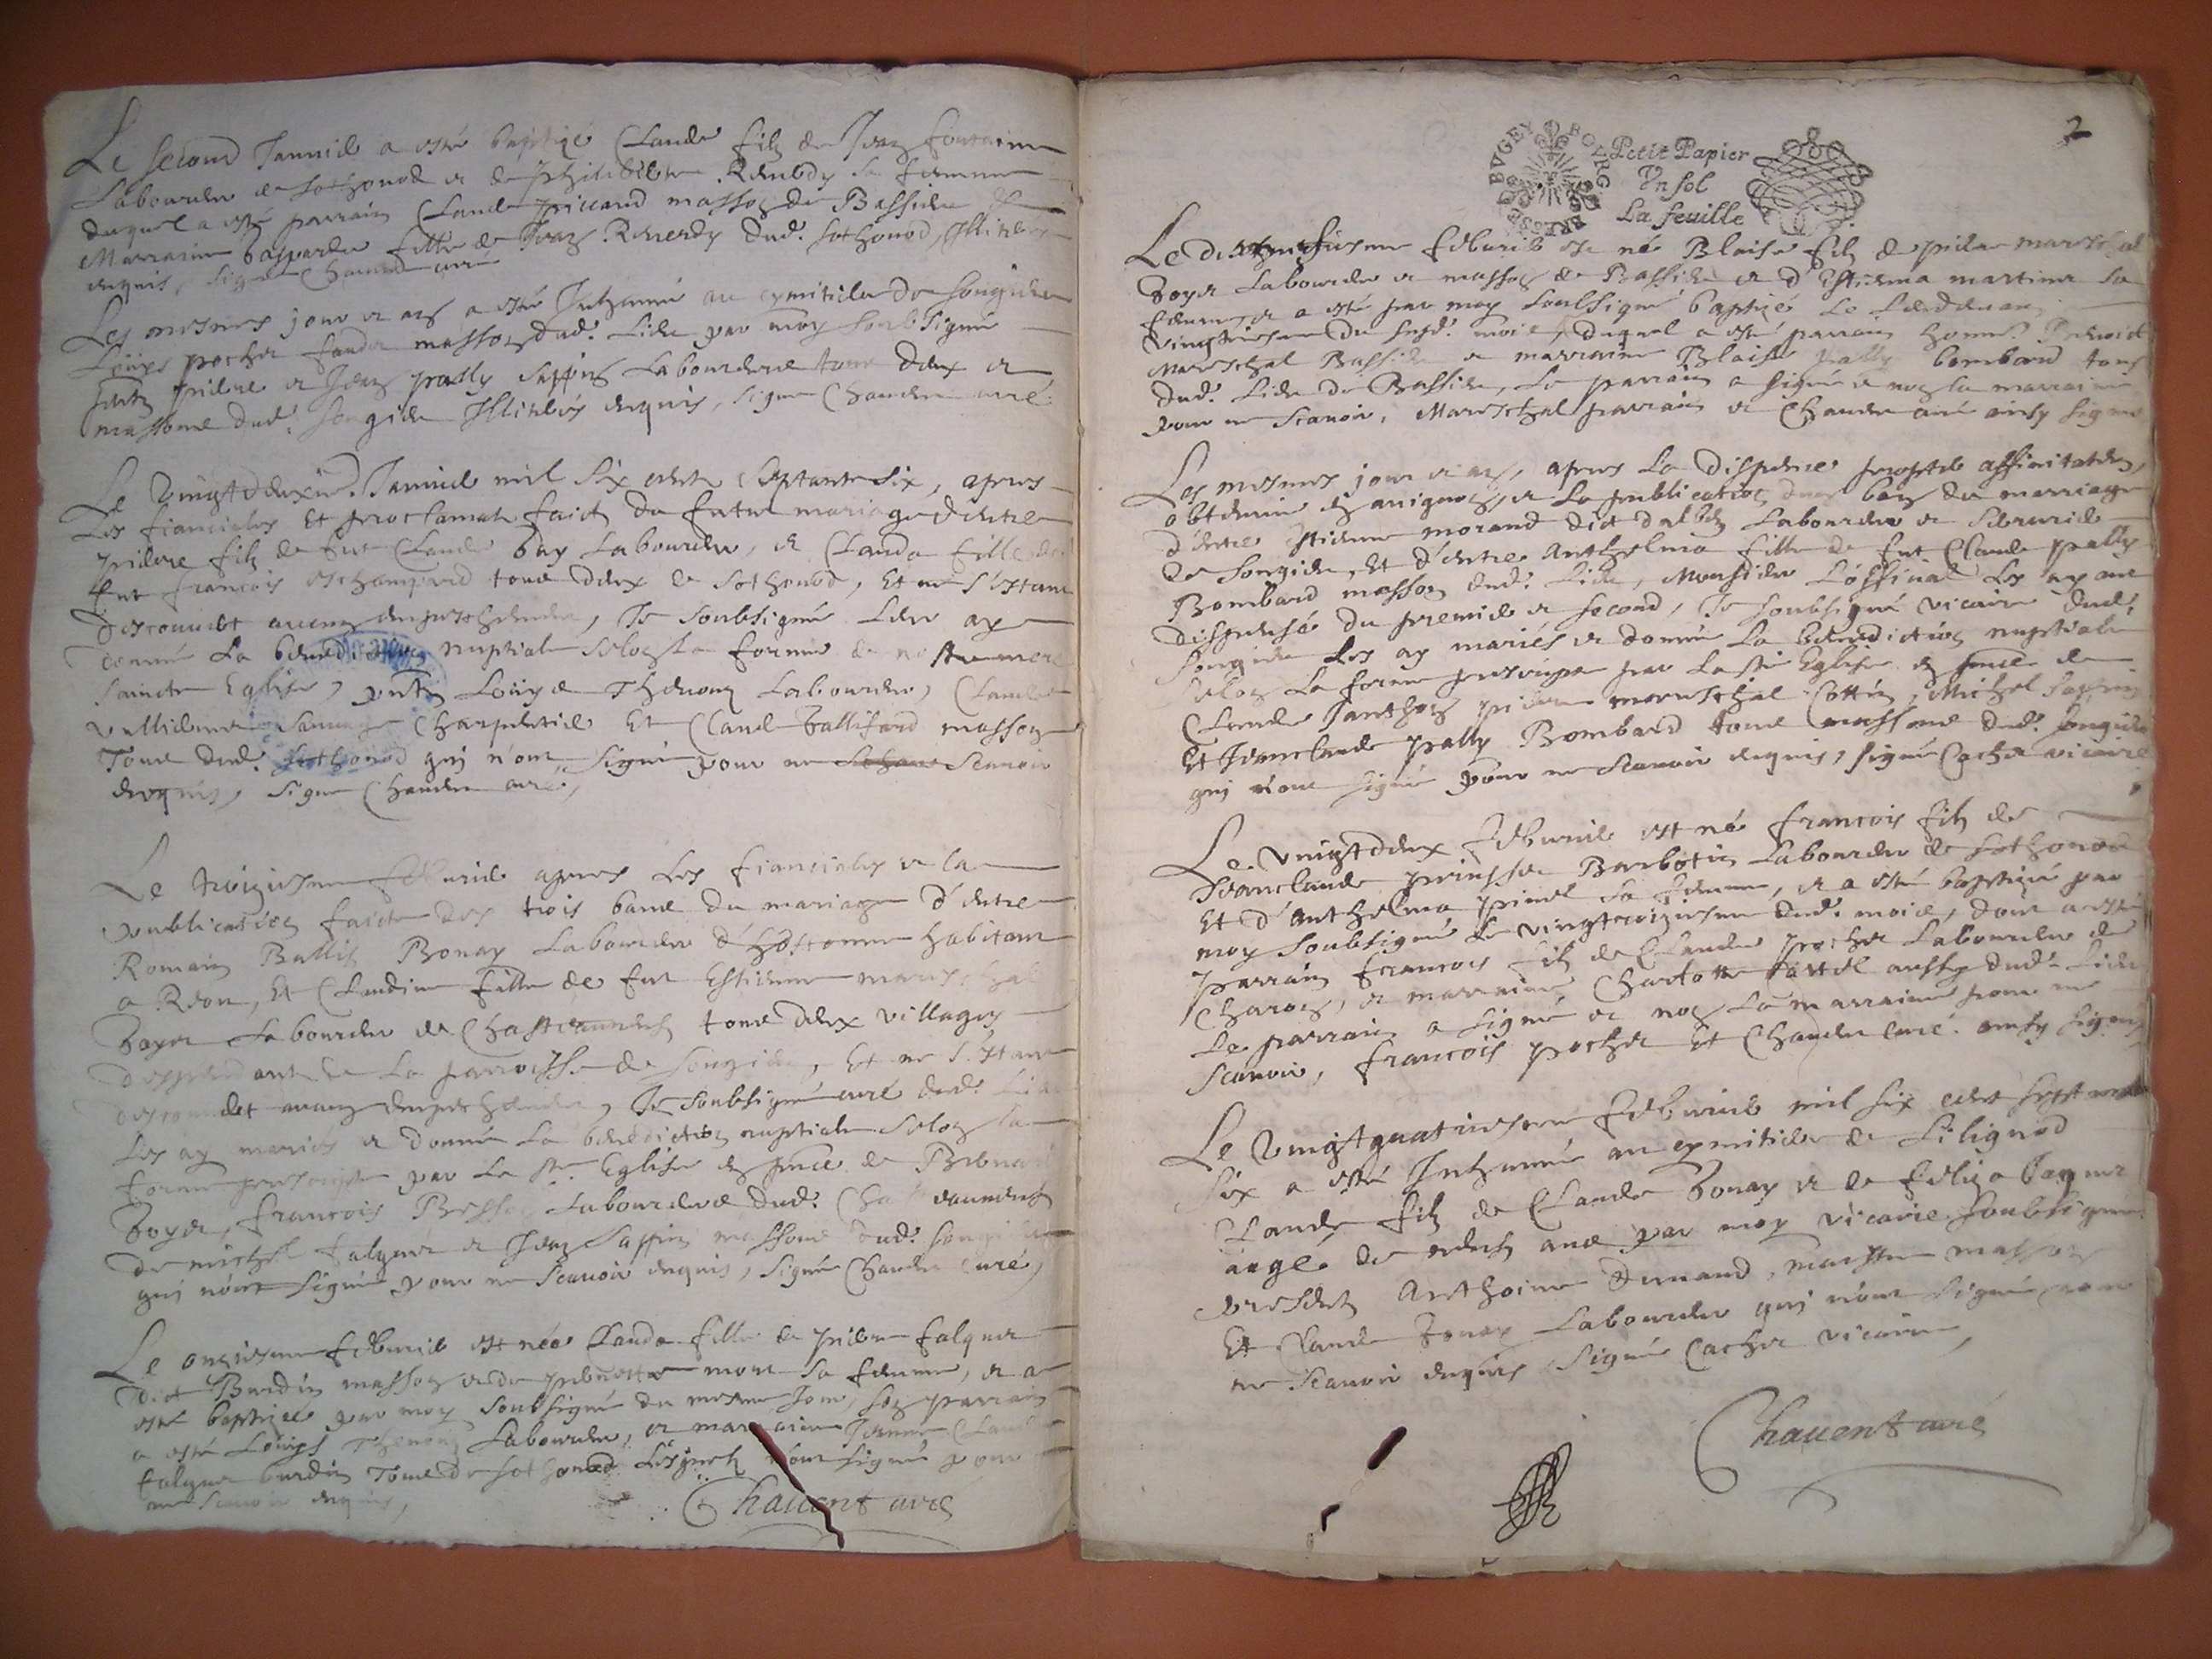 Le second Januier a esté baptizé Claude filz de Jean fontaine
Laboureur de sothonod et de Philiberte Reuerdy sa femme
duquel a esté parrain Claude piccard masson de Bassieu et
Marraine Gasparde fille de Jean Reuerdy dud. sothonod, Illiterés
enquis, signé Chauent curé
Les mesmes jour et an a esté Inhumé au cymitiere de songieu
Louys pochet masson dud. Lieu par moy soubsigné
pntz pierre et Jean pally sappin Laboureurs tous deux et
massons dud. songieu Illiterés enquis, signé Chauent curé
Le vingtdeuxie. Januier mil six cents septante six, apres
Les fiancialles Et proclamat. faict du futur mariage d'entre
pierre filz de feu Claude bay Laboureur, et Clauda fille de
feu francois eschampard tous deux de sothonod, Et ne s'estant
descouuert aucun empeschement, Je soubsigné Leur ay
donné La benediction nuptiale selon La forme de nostre mere
saincte Eglise, pntz Louys Theuenin Laboureur, Claude
vulliome sauuage charpentier Et Claude ballifard masson
Tous dud. sothonod qui n'ont signé pour ne scauoir
enquis, signé Chauent curé,
Le troiziesme feburier apres Les fiancialles et la
publication faicte des trois bans du mariage d'entre
Romain Ballif Bonay Laboureur d'hostonne habitant
a Reon, Et Claudine fille de feu Estienne mareschal
boyer Laboureur de Chasteauneuf tous deux villages
deppendants de La parroisse de songieu, Et ne s'estant
descouuert aucun empeschement, Je soubsigné curé dud. Lieu
Les ay mariés et donné La benediction nuptiale selon la
forme prescripte par La ste. Eglise en pnce de
boyer, francois Besson Laboureurs dud. Chasteauneuf
de michel falquet et Jean sappin massons dud. songieu
qui n'ont signé pour ne scauoir enquis, signé Chauent curé,
Le onziesme feburier est née Clauda fille de pierre falquet
dict Burdin masson et de pernette mour sa femme, et a
esté baptizée par moy soubsigné du mesme Jour, son parrain
a esté Louys Theuenin Laboureur, et marraine Jeanne Claude
falquet burdin Tous de sothonod Lesquels n'ont signé pour
ne scauoir enquis,
Chauent curé
2
BRESSE BVGEY BOVRG
Petit Papier
Vn sol
La feuille
Le feburier est né Blaise filz de pierre mareschal
boyer Laboureur et masson de Bassieu et d'Estienna martine sa
femme, et a esté par moy soubsigné baptizé Le Lendemain
vingtiesme du susd. mois, duquel a esté parrain honne. Benoict
mareschal Bassieu et marraine Blaise pally bombard tous
dud. Lieu de Bassieu, Le parrain a signé et non la marraine
pour ne scauoir, Mareschal parrain et Chauent curé ainsy signé
Les mesmes jour et an, apres La dispence propter affinitatem,
obtenue en auignon, et La publication d'un ban du marriage
d'entre Estienne morand dict Laboureur et
de songieu, Et d'entre Anthelma fille de feu Claude pally
Bombard masson dud. Lieu, Monsieur L'official Les ayant
dispensé du premier et second, Je soubsigné vicaire dud.
songieu Les ay mariés et donné La benediction nuptiale
selon La forme prescripte par La ste Eglise en pnce de
Claude Janthon pierre mareschal Cottin, Michel sappin
Et Jeanclaude pally Bombard tous massons dud. songieu
qui n'ont signé pour ne scauoir enquis, signé Cachet vicaire
Le vingtdeux feburier est né francois filz de
Jeanclaude Barbotin Laboureur de sothonod
Et d'anthelma pinel sa femme, et a esté baptizé par
moy soubsigné Le vingtroiziesme dud. mois, dont a esté
parrain francois filz de Claude pochet Laboureur de
Charon, et marraine Charlotte aussy dud. Lieu
Le parrain a signé et non La marraine pour ne
scauoir, francois pochet Et Chauent curé ainsy signé
Le vingtquatriesme feburier mil six cent septante
six a esté Inhumé au cymitiere de Lilignod
Claude filz de Claude bonay et de felize baquet
aagé de ans par moy vicaire soubsigné
presents Anthoine Durand, maistre masson
Et Claude bonay Laboureur qui n'ont signé pour
ne scauoir enquis signé Cachet vicaire,
Chauent curé